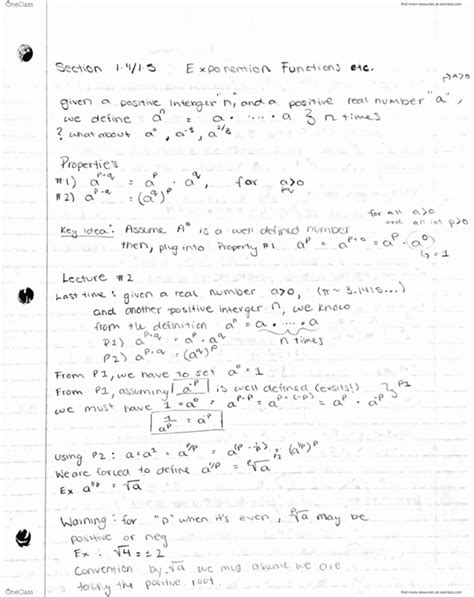 OneClass
find more resources at oneclass.com
Section 1.4/1.5 Exponention Functions etc.
→a>0
given a positive interger "n", and a positive real number "a",
we define aⁿ = a · ... · a } n times
? what about a⁰, a⁻³, a^(2/3)
Properties
#1) a^(p+q) = a^p · a^q, for a>0
#2) a^(p·q) = (a^q)^p
for all a>0
and all int p>0
Key idea: Assume A⁰ is a well defined number
then, plug into Property #1. a^p = a^(p+0) = a^p · (a⁰)
↳ = 1
Lecture #2
Last time: given a real number a>0, (π ~ 3.1415...)
and another positive interger n, we know
from the definition aⁿ = a · ... · a
n times
P1) a^(p+q) = a^p · a^q
P2) a^(p·q) = (a^q)^p
From P1, we have to set a⁰ = 1
From P1, assuming a^(-p) is well defined (exsits!)
we must have 1 = a⁰ = a^(p-p) = a^(p+(-p)) = a^p · a^(-p) } P1
1/a^p = a^(-p)
Using P2: a = a¹ = a^(p/p) = a^(p·1/p) =P2 (a^(1/p))^p
We are forced to define a^(1/p) = ᵖ√a
Ex a^(1/2) = √a
Warning: for "p" when it's even, ᵖ√a may be
positive or neg
Ex: √4 = ±2
Convention by √a we must assume we are
taking the positive root.
OneClass
find more resources at oneclass.com